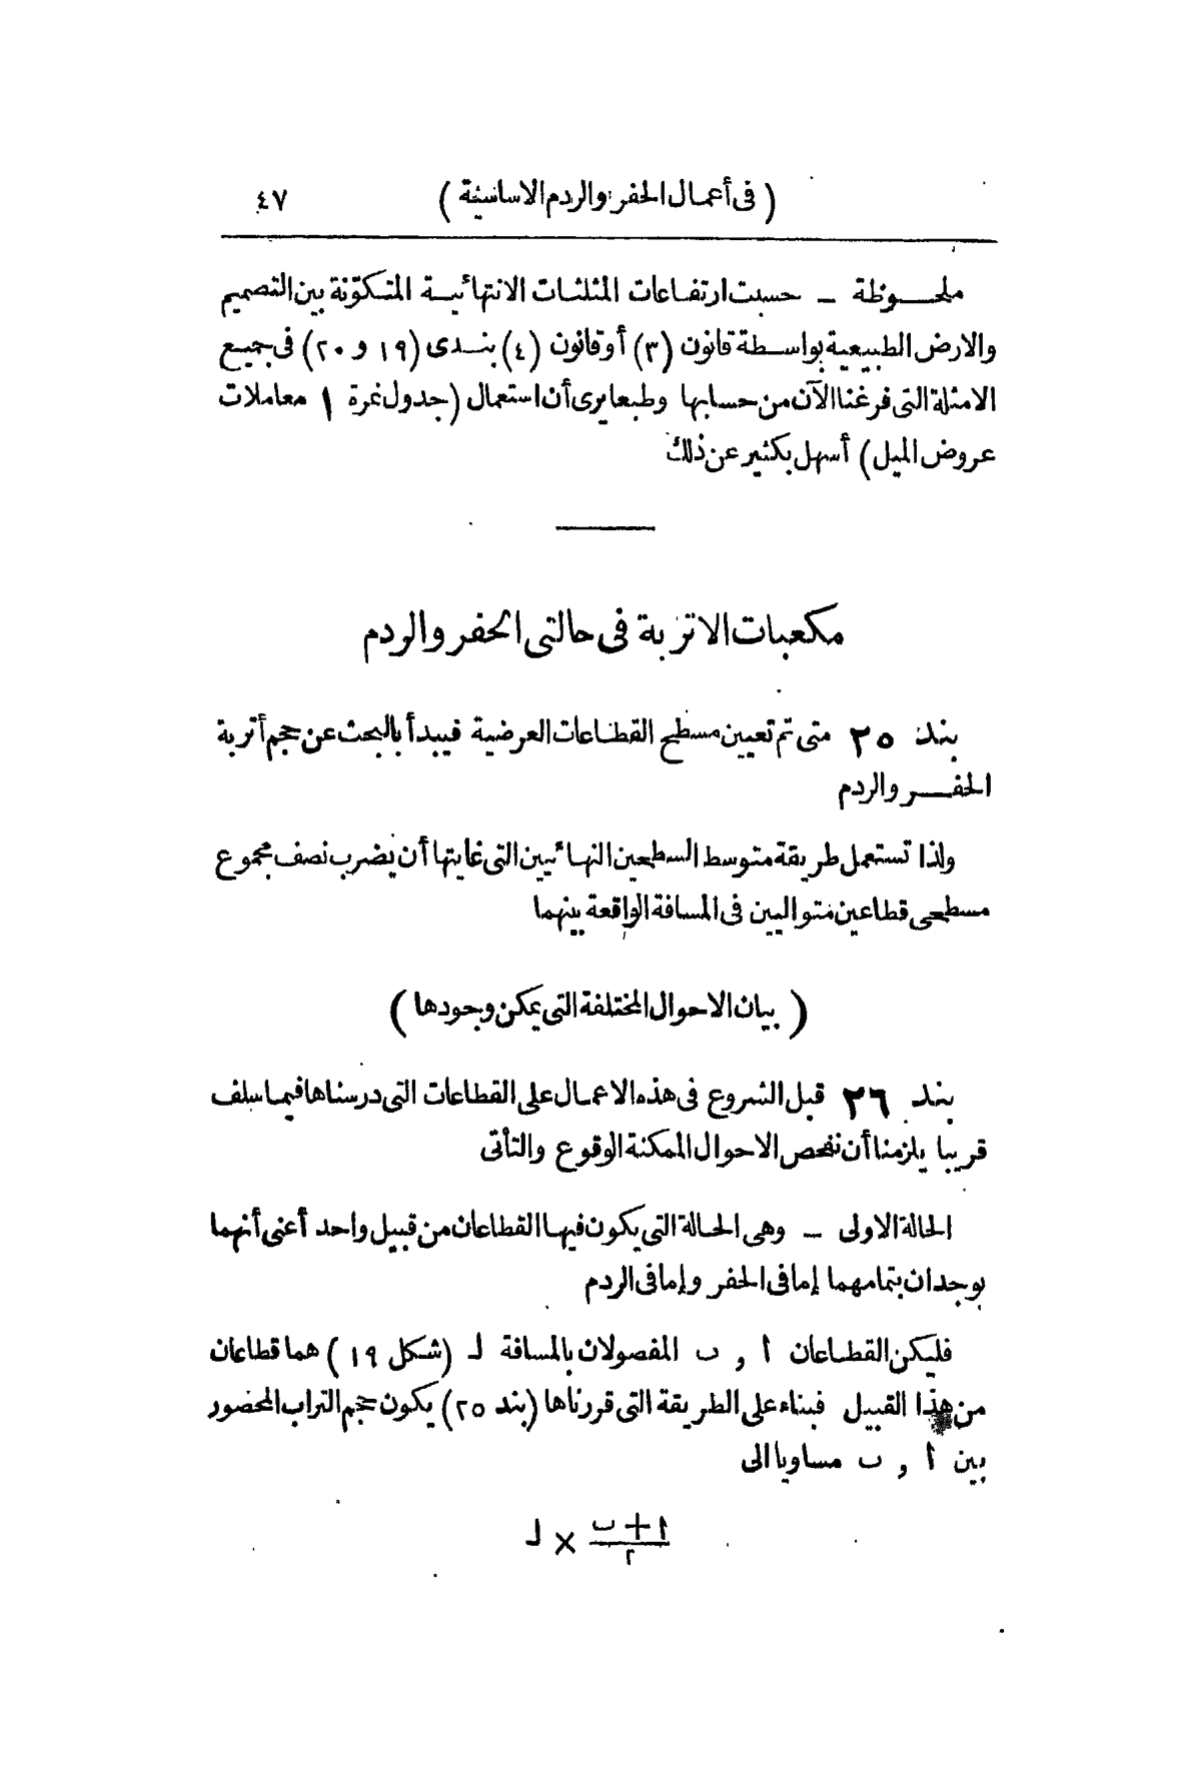 ( فى أعمال الحفر والردم الاساسية ) ٤٧
ملحوظة – حسبت ارتفاعات المثلثات الانتهائية المتكوّنة بين التصميم
والارض الطبيعية بواسطة قانون (٣) أو قانون (٤) بندى (١٩ و ٢٠) فى جميع
الامثلة التى فرغنا الآن من حسابها وطبعا يرى أن استعمال (جدول نمرة ١ معاملات
عروض الميل) أسهل بكثير عن ذلك
مكعبات الاتربة فى حالتى الحفر والردم
بند ٢٥ متى تم تعيين مسطح القطاعات العرضية فيبدأ بالبحث عن حجم أتربة
الحفر والردم
ولذا تستعمل طريقة متوسط السطحين النهائيين التى غايتها أن يضرب نصف مجموع
مسطحى قطاعين متواليين فى المسافة الواقعة بينهما
( بيان الاحوال المختلفة التى يمكن وجودها )
بند ٢٦ قبل الشروع فى هذه الاعمال على القطاعات التى درسناها فيما سلف
قريبا يلزمنا أن نفحص الاحوال الممكنة الوقوع والتأتى
الحالة الاولى – وهى الحالة التى يكون فيها القطاعان من قبيل واحد أعنى أنهما
يوجدان بتمامهما إما فى الحفر وإما فى الردم
فليكن القطاعان ا , ب المفصولان بالمسافة ل (شكل ١٩) هما قطاعان
من هذا القبيل فبناء على الطريقة التى قررناها (بند ٢٥) يكون حجم التراب المحضور
بين ا , ب مساويا الى
ا + ب
× ل
٢